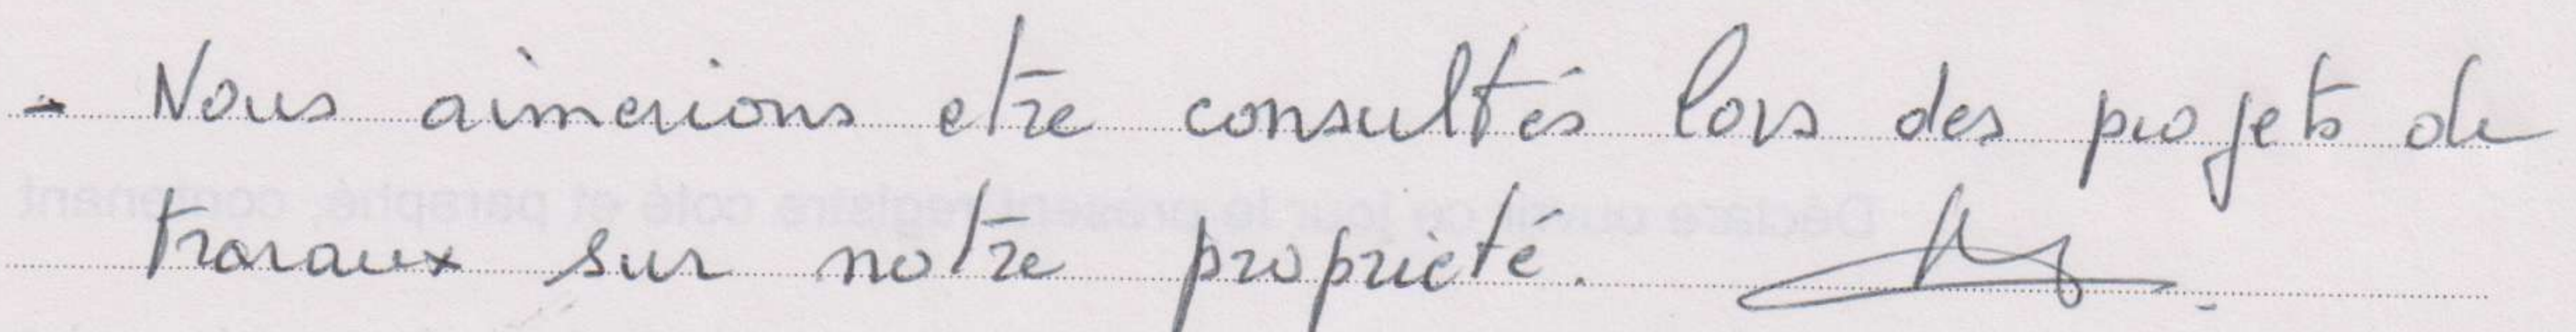 - Nous aimerions etre consultés lors des projets de
travaux sur notre propriété.